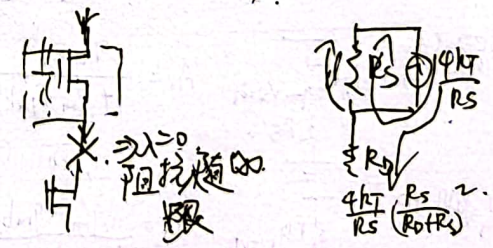 ⇒λ=0
阻抗
RS
4kT
RS
RD
4kT/RS (RS/(RD+RS))²